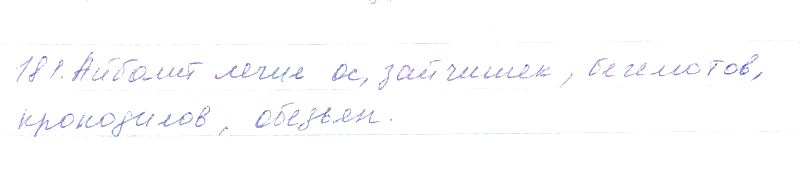 181. Айболит лечил ос, зайчишек, бегемотов,
крокодилов, обезьян.